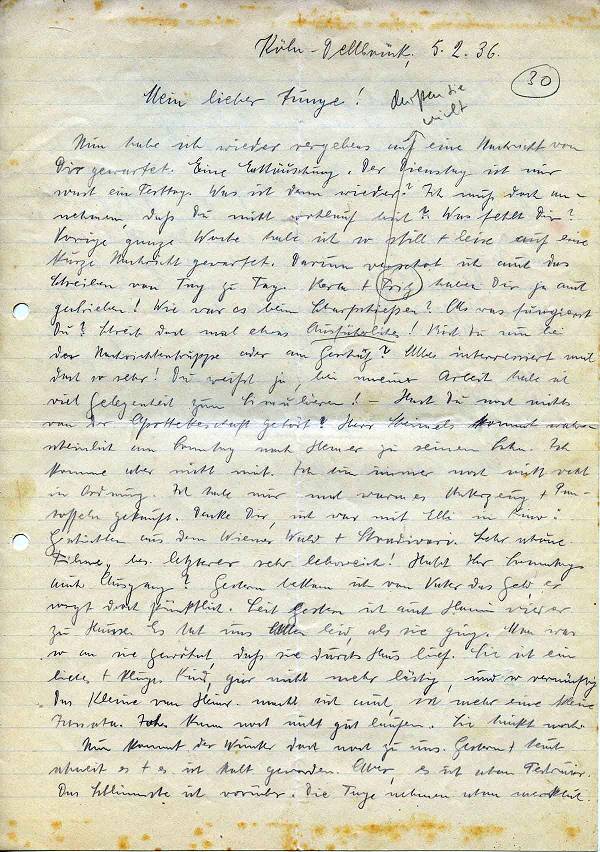 Köln-Dellbrück, 5.2.36.
30
Mein lieber Junge!
nicht
Nun habe ich wieder vergebens auf eine Nachricht von
Dir gewartet. Eine Enttäuschung. Der Dienstag ist nur
sonst ein Festtag. Was ist denn wieder? Ich muß doch an-
nehmen, daß Du nicht wohlauf bist? Was fehlt Dir?
Vorige ganze Woche habe ich so still + leise auf eine
kurze Nachricht gewartet. Darum verschob ich auch das
Schreiben von Tag zu Tag. Herta + Fritz haben Dir ja auch
geschrieben! Wie war es beim Scharfschießen? Als was fungierst
Du? Schreib doch mal etwas Ausführliches! Bist Du nun bei
der Nachrichtentruppe oder am Geschütz? Alles interessiert mich
doch so sehr! Du weißt ja, bei meiner Arbeit habe ich
viel Gelegenheit zum Simulieren! – Hast Du noch nichts
von der gehört? Herr kommt wahr-
scheinlich am Sonntag nach Hemer zu seinem Sohn. Ich
komme aber nicht mit. Ich bin immer noch nicht recht
in Ordnung. Ich habe mir mal warmes Unterzeug + Pan-
toffeln gekauft. Denke Dir, ich war mit Elli im Kino:
G'schichten aus dem Wiener Wald + Stradivari. Sehr schöne
Filme, bes. letzterer sehr lehrreich! Habt Ihr Sonntags
auch Ausgang? Gestern bekam ich von Vater das Geld, er
sorgt doch pünktlich. Seit gestern ist auch Hanni wieder
zu Hause. Es tat uns allen leid, als sie ging. Man war
so an sie gewöhnt, daß sie durchs Haus lief. Sie ist ein
liebes + kluges Kind, gar nicht mehr lästig, und so vernünftig.
Das Kleine von Heinr. macht sich auch, ist mehr eine kleine
kann noch nicht gut laufen. Sie hinkt noch.
Nun kommt der Winter doch noch zu uns. Gestern + heut
schneit es + es ist kalt geworden. Aber, es ist schon Februar.
Das Schlimmste ist vorüber. Die Tage nehmen schon merklich.